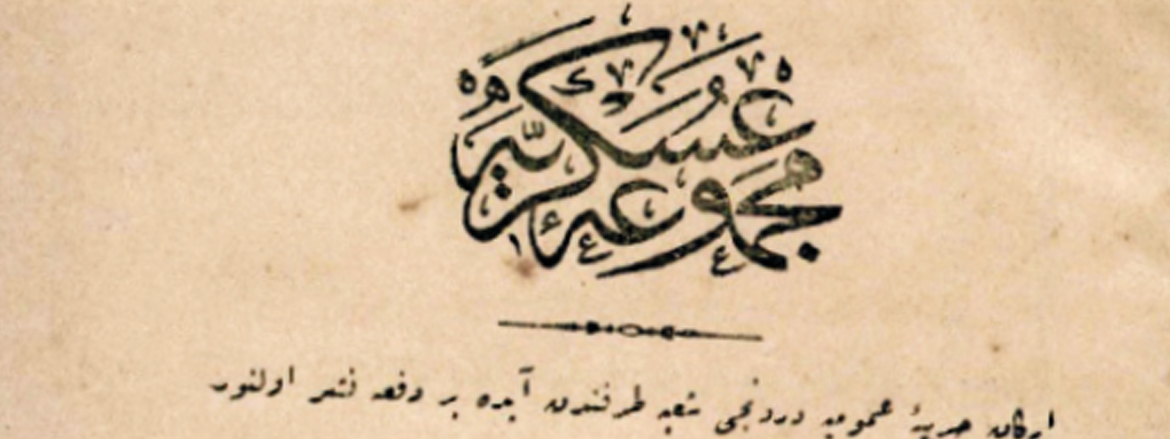 مجموعهٔ عسكريه
اركان حربيهٔ عموميه دردنجى شعبه طرفندن آيده بر دفعه نشر اولنور